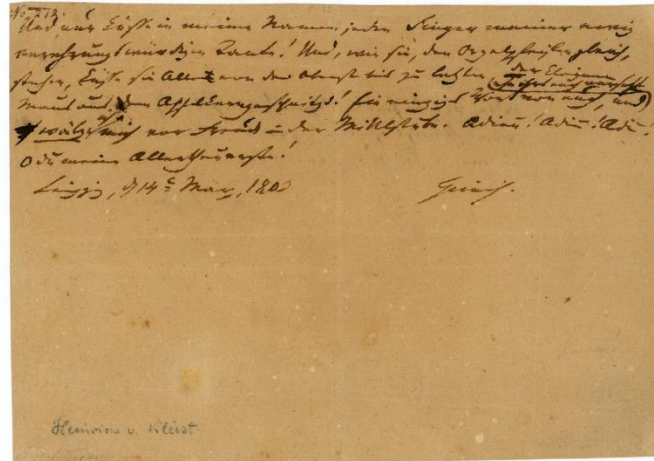 Und nur küsse in meine Namen jeden Finger meiner ewig
verehrungswürdigen Tante! Und, wie sie, den Orgelpfeifen gleich,
stehen, küsse sie Alle von der Obersten bis zu letzten, der kleinen
Maus aus dem Apfelkern geschnitzt! Ein einziges Wort von euch, und
ich wälze mich vor Freude in der Mittelstube. Adieu! Adieu! Adieu!
O du meine Allertheuerste!
Leipzig, d 14t März, 1803 Heinrich.
Heinrich v. Kleist